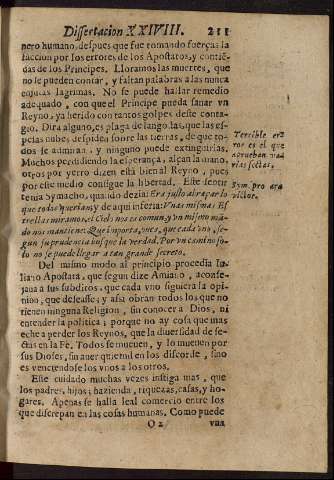 Dissertacion XXIVIII. 211
nero humano, despues que fue tomando fuerças la
faccion por los errores de los Apostatos, y contiẽ-
das de los Principes. Lloramos las muertes, que
no se pueden contar, y faltan palabras a las nunca
enjutas lagrimas. No se puede hallar remedio
adequado, con que el Principe pueda sanar vn
Reyno, ya herido con tantos golpes deste conta-
gio. Dira alguno, es plaga de langosta, que las es-
pesas nubes despidẽn sobre las tierras, de que to-
dos se admiran, y ninguno puede extinguirlas.
Muchos perdiendo la esperança, alçan la mano,
otros por yerro dizen està bien al Reyno, pues
por este medio consigue la libertad. Este sentir
tenia Symacho, quando dezia: Era justo abraçar lo
que todos querian; y de aqui infería: Vnas mismas Es-
trellas miramos, el Cielo nos es comun, y vn mismo mũ-
do nos mantiene: Que importa, pues, que cada vno, se-
gun su prudencia busque la verdad. Por vn camino so-
lo no se puede llegar a tan grande secreto.
Terrible er-
ror es el que
aprueban va-
rias sectas.
Sym. pro ara
victor.
Del mismo modo al principio procedia Iu-
liano Apostata, que segun dize Amiano, aconse-
jaua a sus subditos, que cada vno siguiera la opi-
nion, que desease; y assi obran todos los que no
tienen ninguna Religion, sin conocer a Dios, ni
entender la politica; porque no ay cosa que mas
eche a perder los Reynos, que la diuersidad de se-
ctas en la Fè. Todos se mueuen, y lo mueuen por
sus Dioses, sin auer quietud en los discordes, sino
es venciendose los vnos a los otros.
Este cuidado muchas vezes instiga mas, que
los padres, hijos, hazienda, riquezas, casas, y ho-
gares. Apenas se halla leal comercio entre los
que discrepan en las cosas humanas. Como puede
O 2 vna